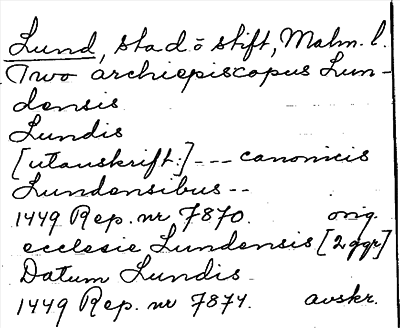 Lund, stad o stift, Malm. l.
Two archiepiscopus Lun-
densis
Lundis
[utanskrift:] --- canonicis
Lundensibus --
1449 Rep. nr 7870. orig.
ecclesie Lundensis [2 ggr]
Datum Lundis
1449 Rep. nr 7874. avskr.